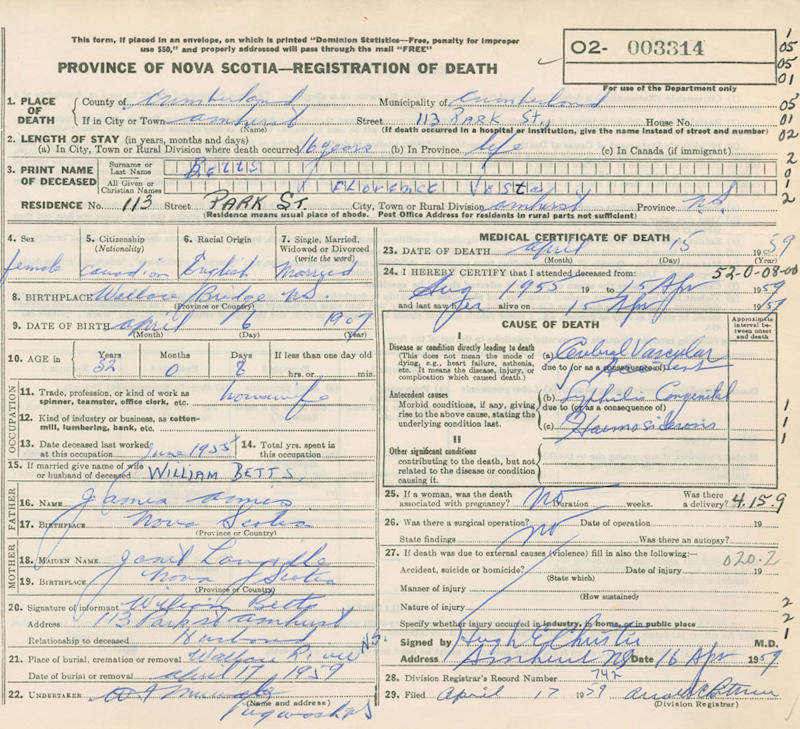 This form, if placed in an envelope, on which is printed "Dominion Statistics—Free, penalty for improper
use $50," and properly addressed will pass through the mail "FREE"
O2- 003314
1
05
05
01
PROVINCE OF NOVA SCOTIA—REGISTRATION OF DEATH
For use of the Department only
1. PLACE OF DEATH { County of Cumberland Municipality of Cumberland 05
If in City or Town amherst Street 113 PARK ST., House No. 01
(Name) (If death occurred in a hospital or institution, give the name instead of street and number)
2. LENGTH OF STAY (in years, months and days) 02
(a) In City, Town or Rural Division where death occurred 16 years (b) In Province life (c) In Canada (if immigrant)
3. PRINT NAME OF DECEASED { Surname or Last Name BETTS 2
0
All Given or Christian Names FLORENCE VESta 1
RESIDENCE No. 113 Street PARK ST. City, Town or Rural Division amherst Province N.S. 2
(Residence means usual place of abode. Post Office Address for residents in rural parts not sufficient)
4. Sex
female
5. Citizenship
(Nationality)
Canadian
6. Racial Origin
English
7. Single, Married,
Widowed or Divorced
(write the word)
Married
8. BIRTHPLACE Wallace Bridge N.S.
(Province or Country)
9. DATE OF BIRTH april 6 1907
(Month) (Day) (Year)
10. AGE in Years Months Days If less than one day old
52 0 8 hrs. or min.
OCCUPATION
11. Trade, profession, or kind of work as
spinner, teamster, office clerk, etc. housewife
12. Kind of industry or business, as cotton-
mill, lumbering, bank, etc.
13. Date deceased last worked
at this occupation June 1955
14. Total yrs. spent in
this occupation
15. If married give name of wife
or husband of deceased WILLIAM BETTS
FATHER
16. NAME James
17. BIRTHPLACE Nova Scotia
(Province or Country)
MOTHER
18. MAIDEN NAME Janet
19. BIRTHPLACE Nova Scotia
(Province or Country)
20. Signature of informant William Betts
Address 113 Park st amherst N.S.
Relationship to deceased Husband
21. Place of burial, cremation or removal Wallace River
Date of burial or removal april 17 1959
22. UNDERTAKER
(Name and address)
Pugwash NS
MEDICAL CERTIFICATE OF DEATH
23. DATE OF DEATH april 15 1959
(Month) (Day) (Year)
24. I HEREBY CERTIFY that I attended deceased from: 52-0-08-00
Aug 1955 19 to 15 Apr 1959
and last saw her alive on 15 Apr 1959
CAUSE OF DEATH
Approximate
interval be-
tween onset
and death
I
Disease or condition directly leading to death
(This does not mean the mode of
dying, e.g., heart failure, asthenia,
etc. It means the disease, injury, or
complication which caused death.)
(a) Cerebral Vascular
due to (or as a consequence of) Accident
Antecedent causes
Morbid conditions, if any, giving
rise to the above cause, stating the
underlying condition last.
(b) Syphilis Congenital
due to (or as a consequence of) 1
(c) Haemosiderosis 1
1
II
Other significant conditions
contributing to the death, but not
related to the disease or condition
causing it.
25. If a woman, was the death
associated with pregnancy? NO Duration weeks. Was there
a delivery? 4.15.9
26. Was there a surgical operation? NO Date of operation 19
State findings Was there an autopsy?
27. If death was due to external causes (violence) fill in also the following:— 020.2
Accident, suicide or homicide? Date of injury 19
(State which)
Manner of injury
(How sustained)
Nature of injury 2
Specify whether injury occurred in industry, in home, or in public place 2
Signed by Hugh E. Christie M.D. 1
Address Amherst NS Date 16 Apr 1959
28. Division Registrar's Record Number 742
29. Filed April 17 1959
(Division Registrar)